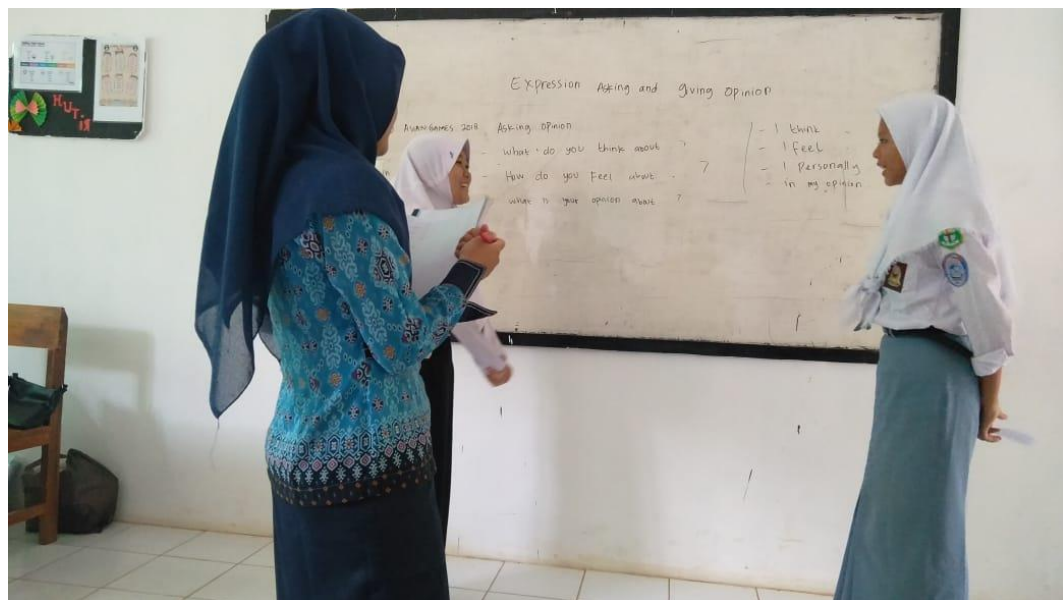 HUT-
Expression Asking and giving Opinion
ASIAN GAMES 2018 Asking Opinion
- what do you think about ?
- How do you Feel about - ?
what is your opinion about ?
- I think
- I feel
- I Personally
- in my opinion